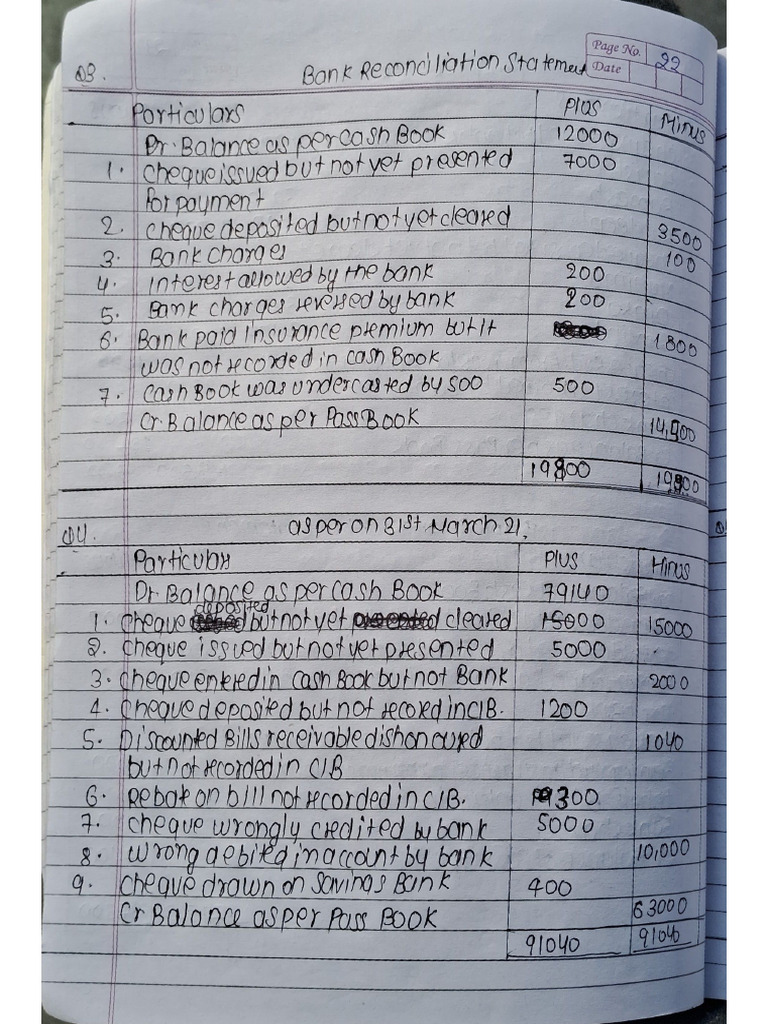 Page No. 22
Date
Q3. Bank Reconciliation Statement
Particulars Plus Minus
Dr. Balance as per cash Book 12000
1. Cheque issued but not yet presented 7000
for payment
2. cheque deposited but not yet cleared 3500
3. Bank Charges 100
4. Interest allowed by the bank 200
5. Bank charges reversed by bank 200
6. Bank paid Insurance premium but it 1800
was not recorded in cash Book
7. Cash Book was undercasted by 500 500
Cr. Balance as per Pass Book 14,500
19900 19900
Q4. as per on 31st March 21,
Particulars Plus Minus
Dr Balance as per cash Book 79140
deposited
1. cheque but not yet cleared 15000 15000
2. cheque issued but not yet presented 5000
3. cheque entered in cash Book but not Bank 2000
4. Cheque deposited but not recored in C/B. 1200
5. Discounted Bills receivable dishonoured 1040
but not recorded in C/B
6. Rebate on bill not recorded in C/B. 300
7. cheque wrongly credited by bank 5000
8. wrong debited in account by bank 10,000
9. cheque drawn on Savings Bank 400
Cr Balance as per Pass Book 63000
91040 91040